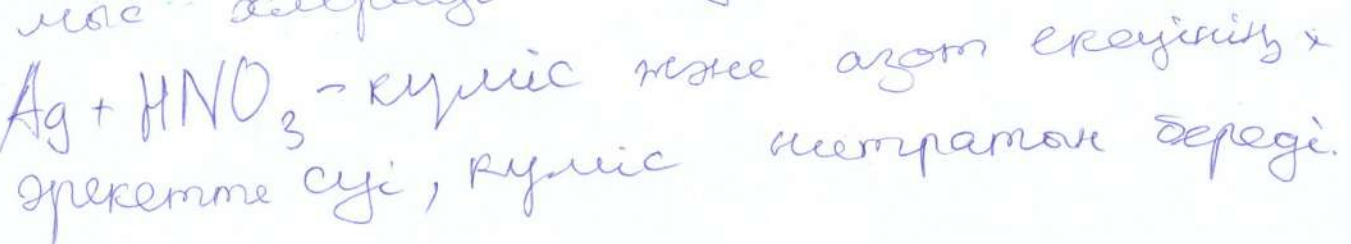 мыс
Ag + HNO₃ - күміс және азот екеуінің х
әрекетте суі, күміс нитратын береді.